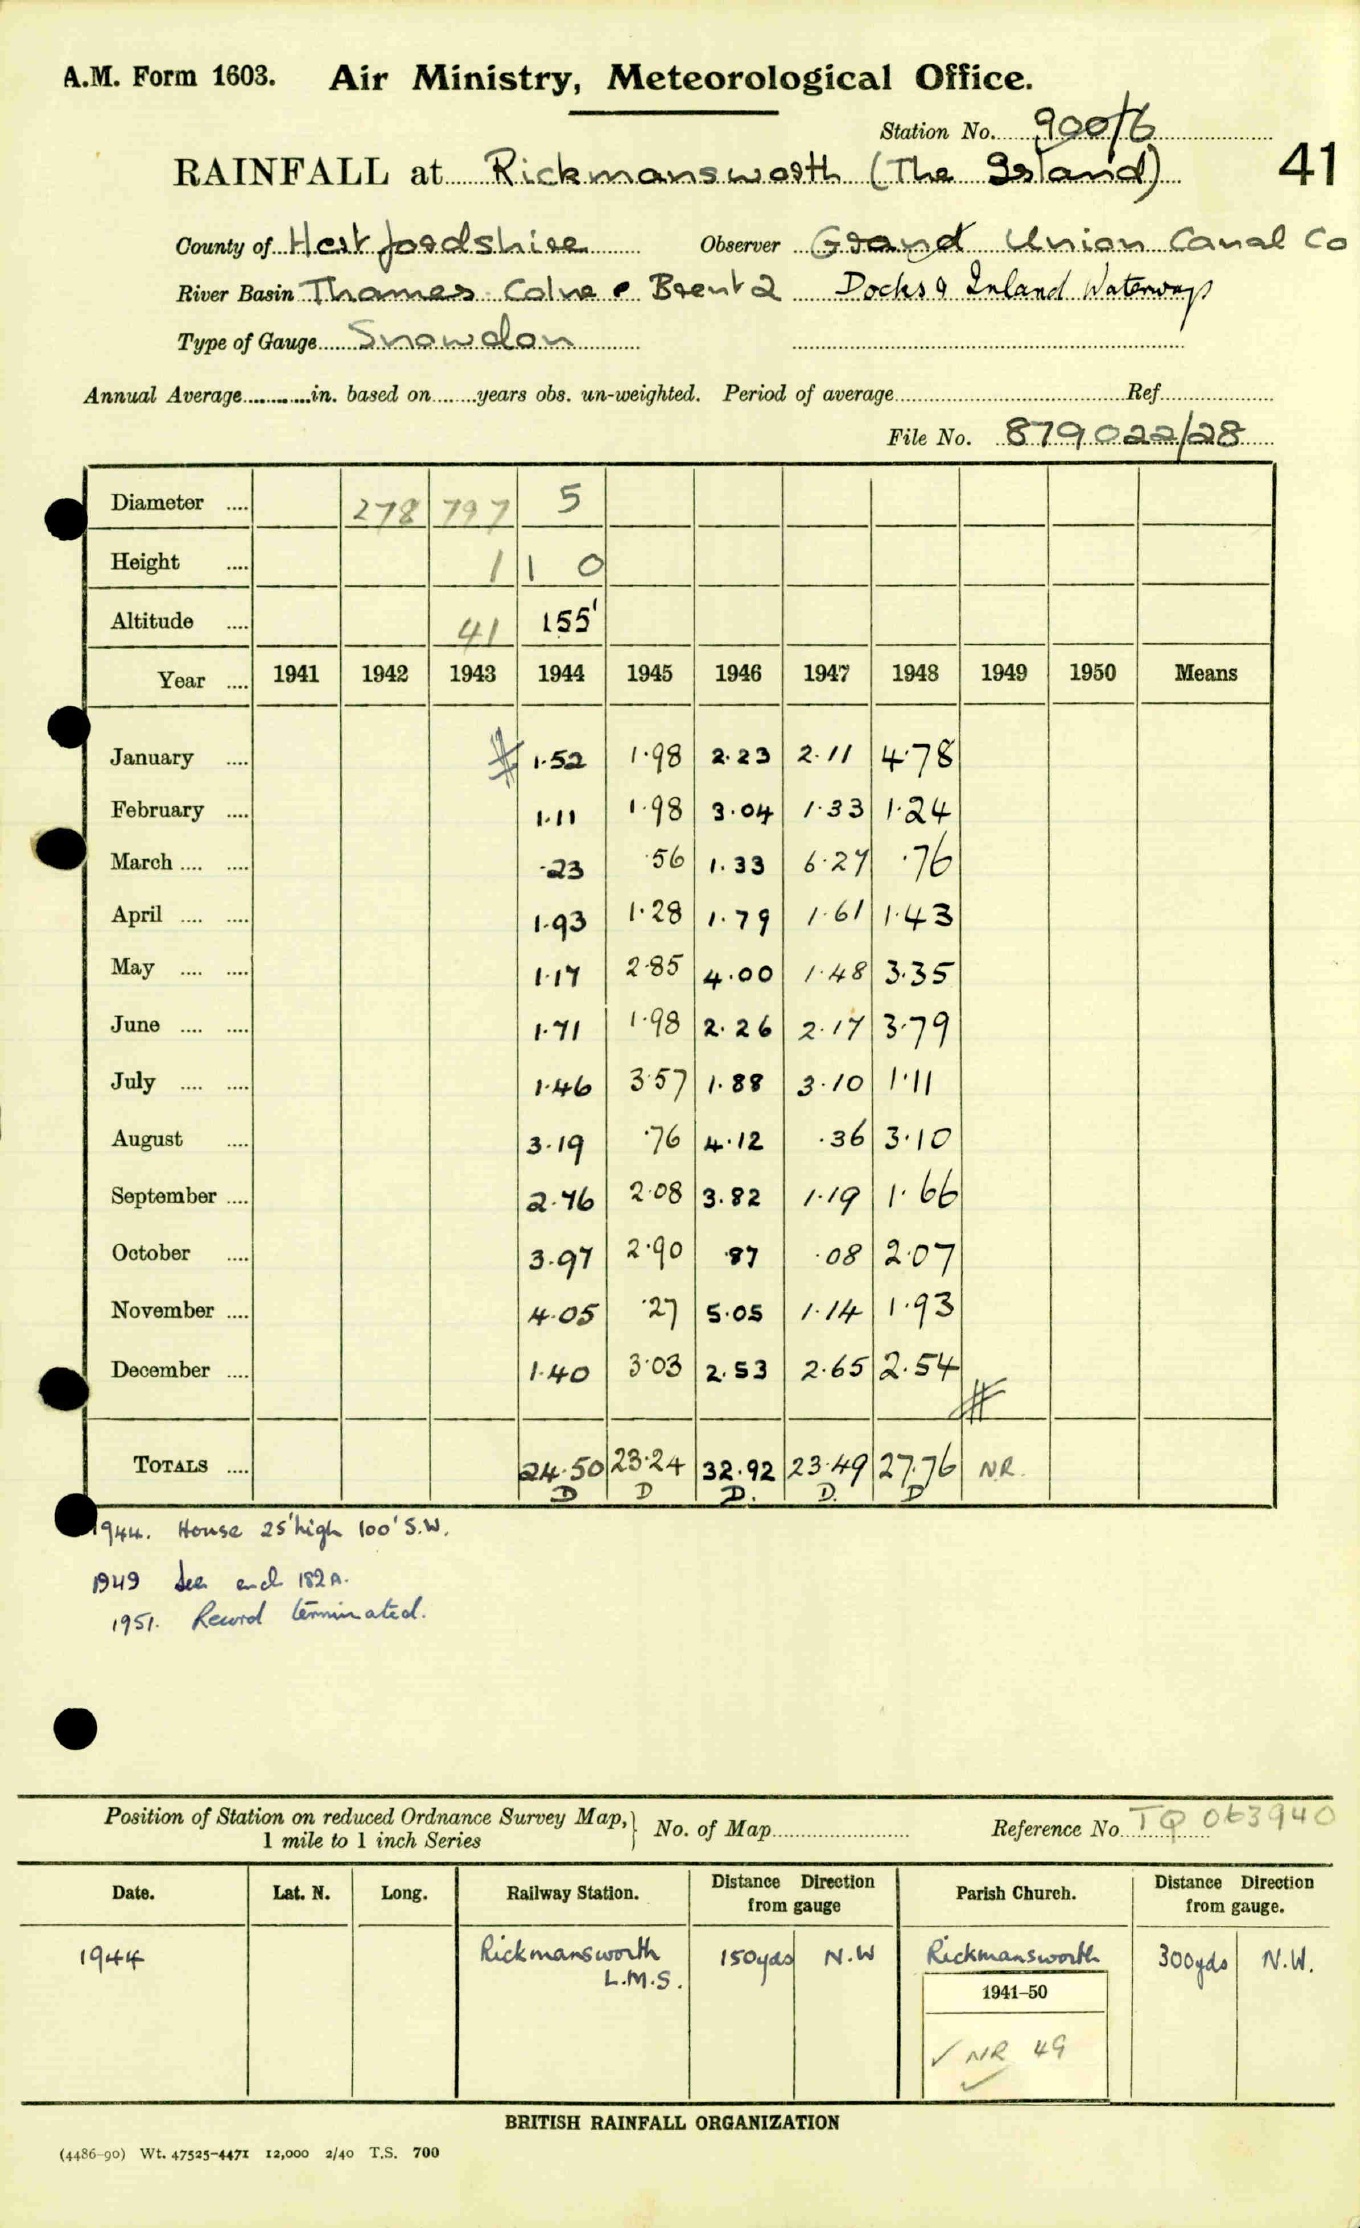 A.M. Form 1603. Air Ministry, Meteorological Office.
Station No. 900/6
RAINFALL at Rickmansworth (The Island) 41
County of Hertfordshire Observer Grand Union Canal Co
River Basin Thames Colne & Brent 2 Docks & Inland Waterways
Type of Gauge Snowdon
Annual Average..........in. based on........years obs. un-weighted. Period of average.......... Ref..........
File No. 879022/28
Diameter .... 278 797 5
Height .... 1 1 0
Altitude .... 41 155'
Year .... 1941 1942 1943 1944 1945 1946 1947 1948 1949 1950 Means
January .... 1.52 1.98 2.23 2.11 4.78
February .... 1.11 1.98 3.04 1.33 1.24
March .... .... .23 .56 1.33 6.27 .76
April .... .... 1.93 1.28 1.79 1.61 1.43
May .... .... 1.17 2.85 4.00 1.48 3.35
June .... .... 1.71 1.98 2.26 2.17 3.79
July .... .... 1.46 3.57 1.88 3.10 1.11
August .... 3.19 .76 4.12 .36 3.10
September .... 2.76 2.08 3.82 1.19 1.66
October .... 3.97 2.90 .87 .08 2.07
November .... 4.05 .27 5.05 1.14 1.93
December .... 1.40 3.03 2.53 2.65 2.54
TOTALS .... 24.50 23.24 32.92 23.49 27.76 N.R.
D D D. D. D
1944. House 25' high 100' S.W.
1949 See encl 182A.
1951. Record terminated.
Position of Station on reduced Ordnance Survey Map, 1 mile to 1 inch Series } No. of Map.......... Reference No. TQ 063940
Date. Lat. N. Long. Railway Station. Distance Direction from gauge Parish Church. Distance Direction from gauge.
1944 Rickmansworth L.M.S. 150yds N.W Rickmansworth 300yds N.W.
1941–50
✓ NR 49
✓
BRITISH RAINFALL ORGANIZATION
(4486–90) Wt. 47525–4471 12,000 2/40 T.S. 700